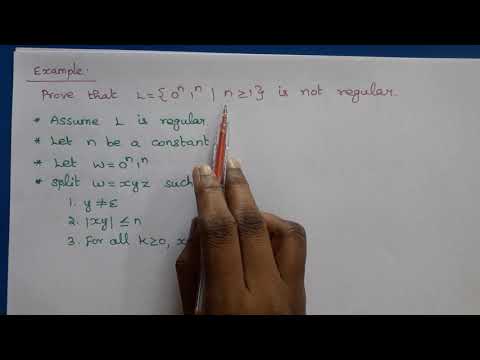 Example:
Prove that L = {0ⁿ1ⁿ | n ≥ 1} is not regular.
* Assume L is regular
* Let n be a constant
* Let w = 0ⁿ1ⁿ
* split w = xyz such
1. y ≠ ε
2. |xy| ≤ n
3. For all k ≥ 0, x